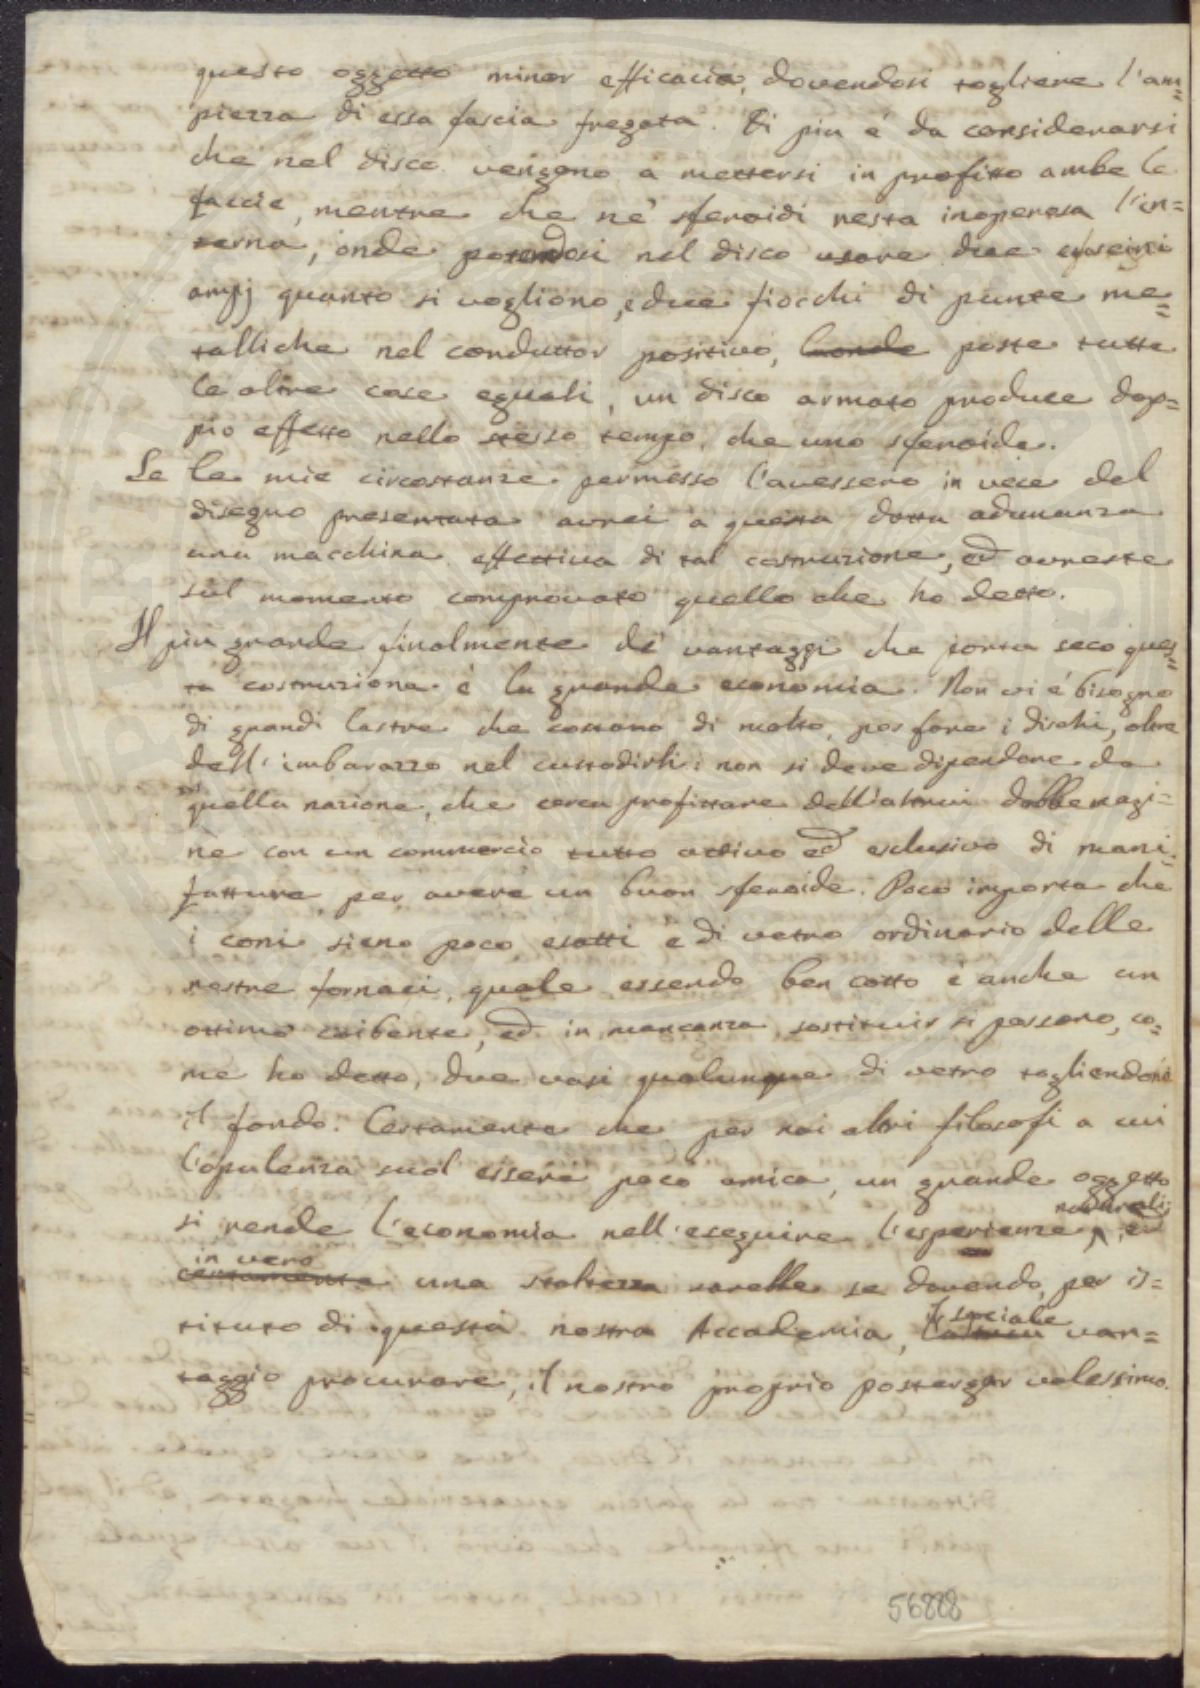 questo oggetto minor efficacia, dovendosi togliere l'am=
piezza di essa fascia fregata. Di piu é da considerarsi
che nel disco vengono a mettersi in profitto ambe le
faccie, mentre che ne' sferoidi resta inoperosa l'in=
terna, onde potendosi nel disco usare due
ampj quanto si vogliono, e due fiocchi di punte me=
talliche nel conduttor positivo, poste tutte
le altre cose eguali, un disco armato produce dop=
pio effetto nello stesso tempo, che uno sferoide.
Se le mie circostanze permesso l'avessero in vece del
disegno presentata avrei a questa dotta adunanza
una macchina effettiva di tal costruzione, ed avreste
sul momento comprovato quello che ho detto.
Il piu grande finalmente de' vantaggi che porta seco ques=
ta costruzione é la grande economia. Non vi é bisogno
di grandi lastre che costano di molto, per fare i dischi, oltre
dell'imbarazzo nel custodirli: non si deve dipendere da
quella nazione, che cerca profittare dell'altrui dabbenagi=
ne con un commercio tutto attivo ed esclusivo di mani=
fatture, per avere un buon sferoide. Poco importa che
i coni sieno poco esatti e di vetro ordinario delle
nostre fornaci, quale essendo ben cotto é anche un
ottimo coibente, ed in mancanza, sostituir si possono, co=
me ho detto, due vasi qualunque di vetro togliendone
il fondo. Certamente che per noi altri filosofi a cui
l'opulenza suol essere poco amica, un grande oggetto
si rende l'economia nell'eseguire l'esperienze naturali; ed
in vero certamente una stoltezza sarebbe se dovendo, per is=
tituto di questa nostra Accademia, il sociale van=
taggio procurare, il nostro proprio postergar volessimo.
56888